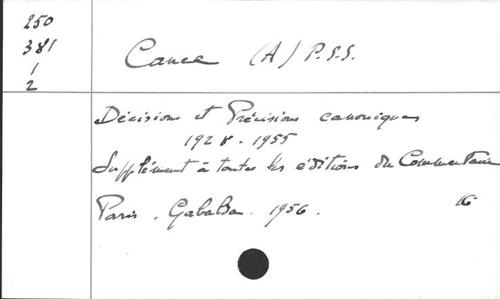 250
381
1
2
Cance (A) P.S.S.
Décisions et Précisions canoniques
1928 - 1955
Supplément à toutes les éditions du Commentaire
Paris. Gabalda. 1956. 16°